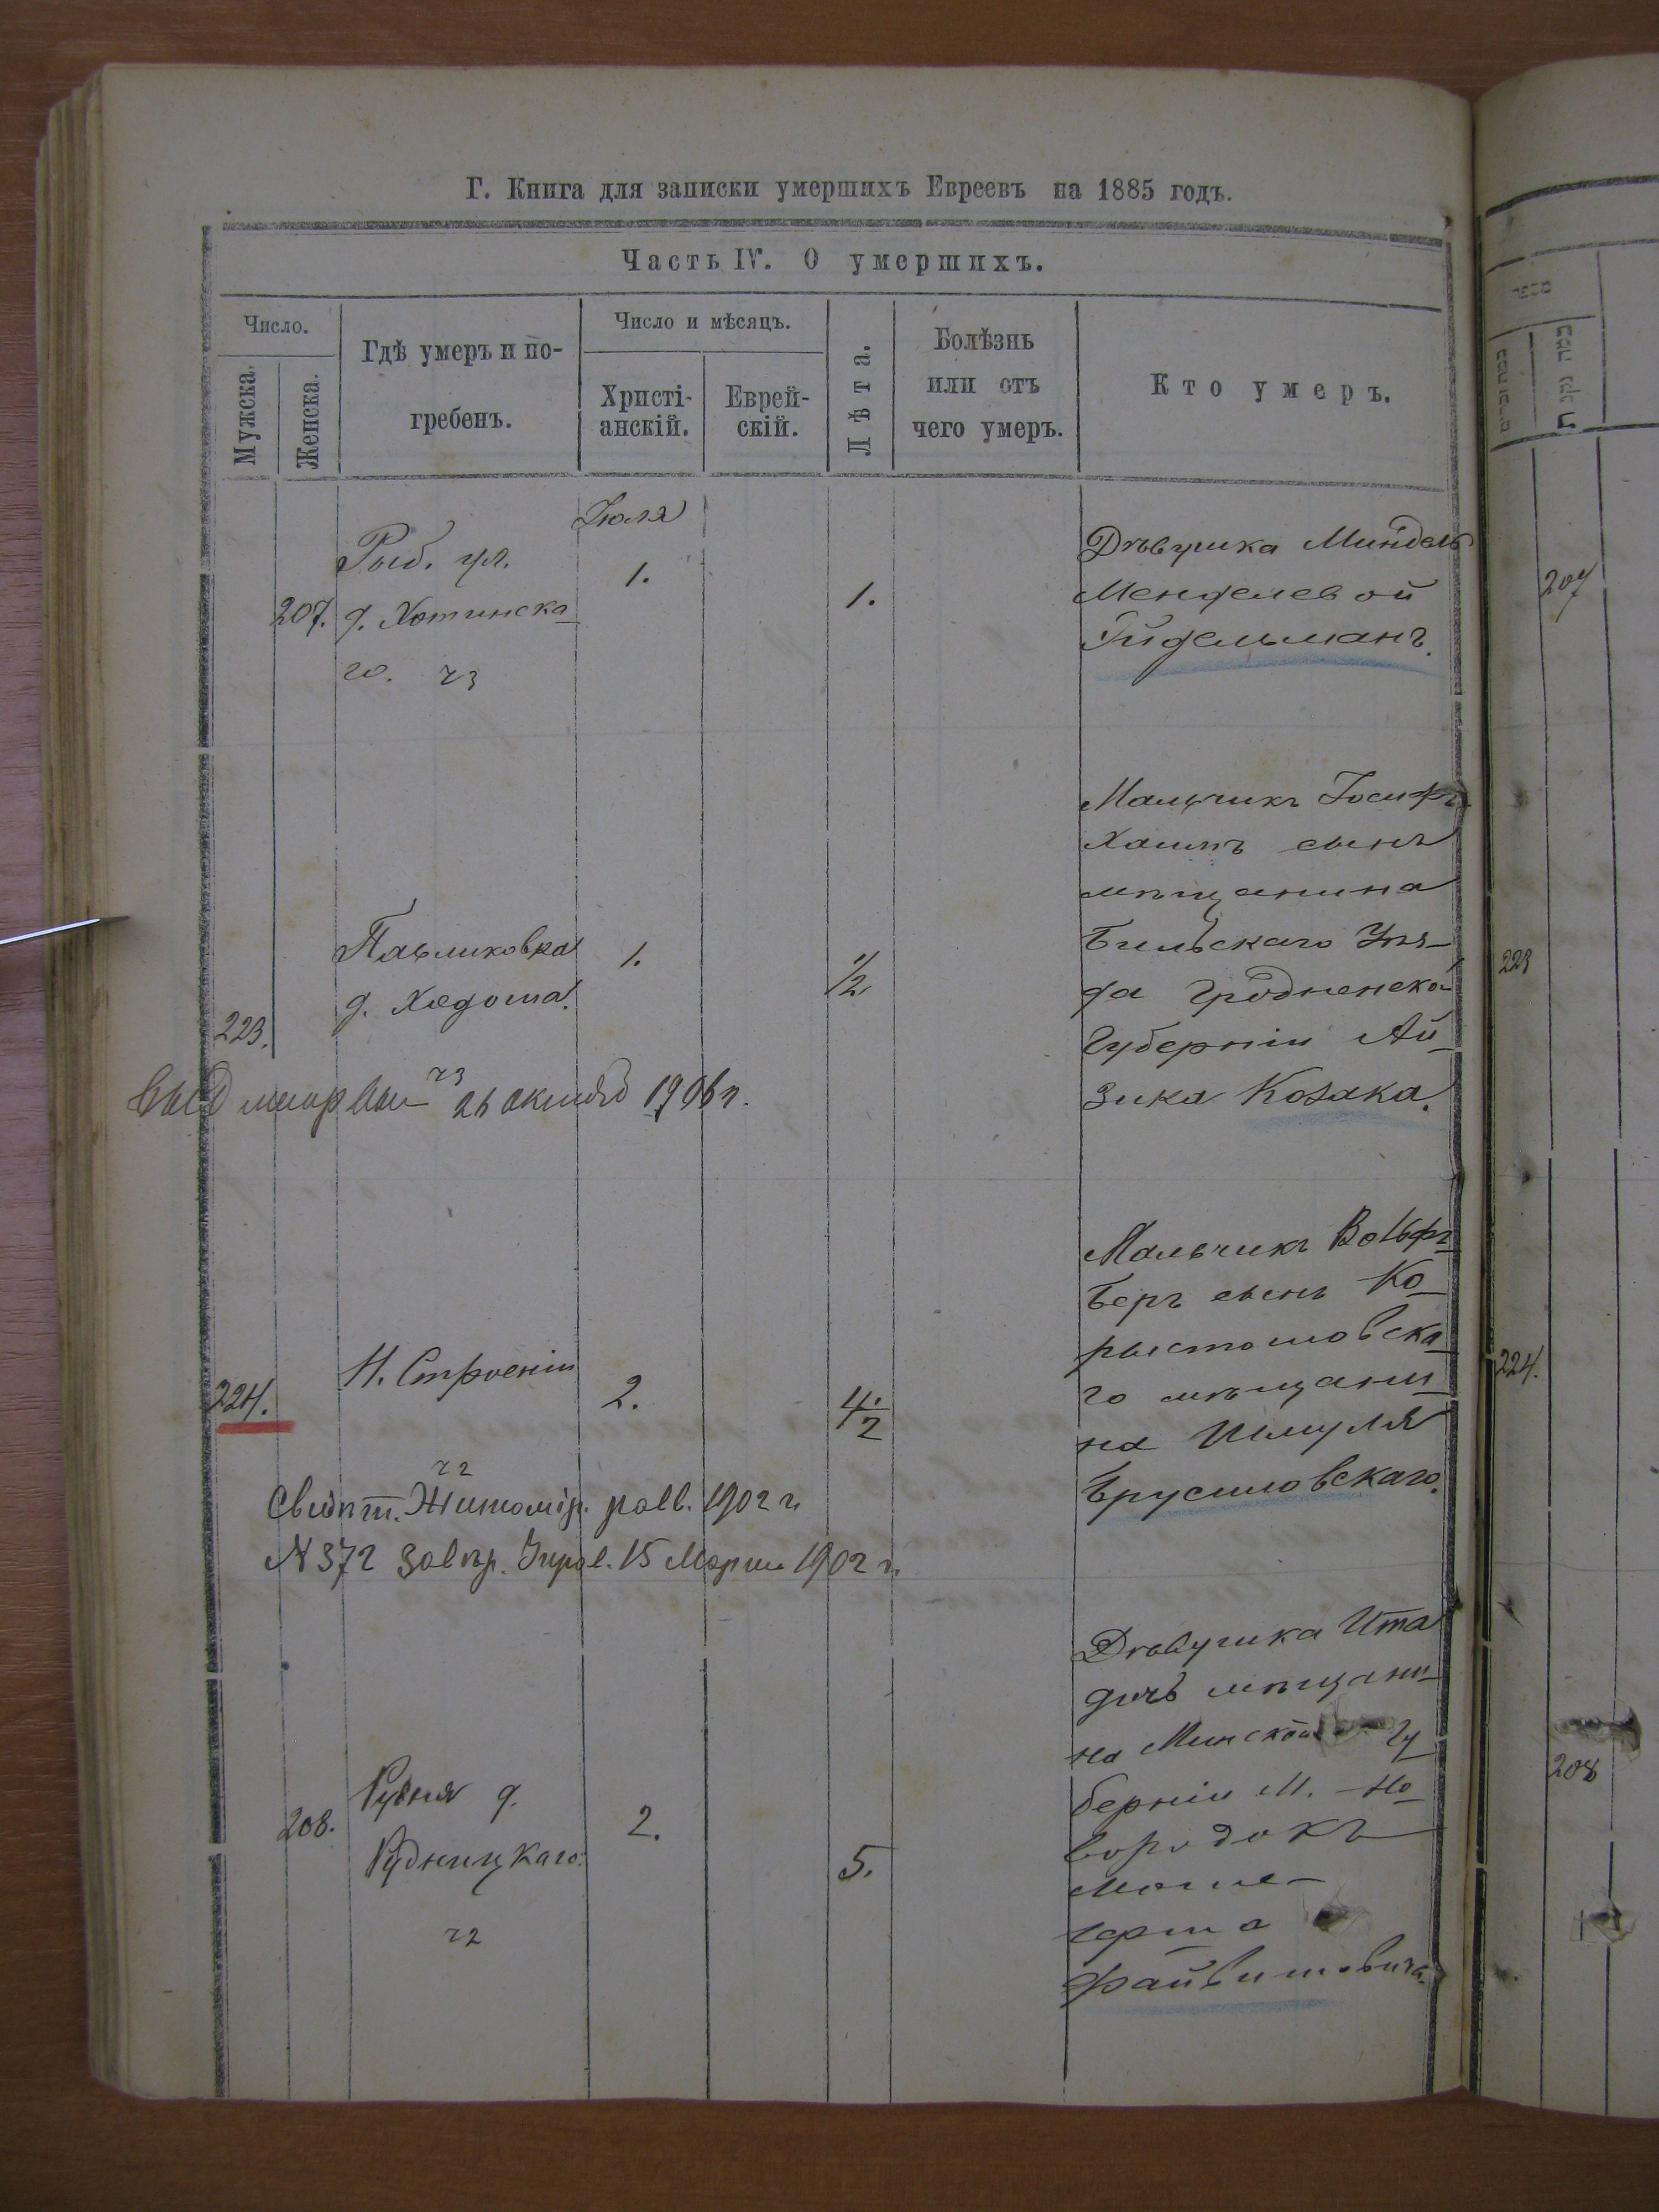 Г. Книга для записки умершихъ Евреевъ на 1885 годъ.
Часть IV. О умершихъ.
Число.
Мужска.
Женска.
Гдѣ умеръ и по-
гребенъ.
Число и мѣсяцъ.
Христі-
анскій.
Еврей-
скій.
Лѣта.
Болѣзнь
или отъ
чего умеръ.
Кто умеръ.
Іюля
207.
Рыб. ул.
д. Хотинска
го. ч3
1.
1.
Дѣвушка Миндель
Менделевой
207
223.
Павликовка
д. Ходоша.
ч3
1.
1/2
Мальчикъ Іосифъ
Хаимъ сынъ
мѣщанина
Бильскаго Уѣз-
да Гродненской
Губерніи Ай-
зика Козака.
223
26 1906 г.
224.
Н. Строеніи
ч2
2.
4 1/2
Мальчикъ Вольфъ
Беръ сынъ Ко-
рыстышовска
го мѣщани-
на Шмуля
Брусиловскаго.
224.
Свидѣт. Житомір. равв. 1902 г.
№ 372 завѣр. Управ. 15 Марта 1902 г.
208.
Рудня д.
Рудницкаго.
ч2
2.
5.
Дѣвушка Ита
дочь мѣщани-
на Минской Гу
берніи М. Но-
вородокъ
208